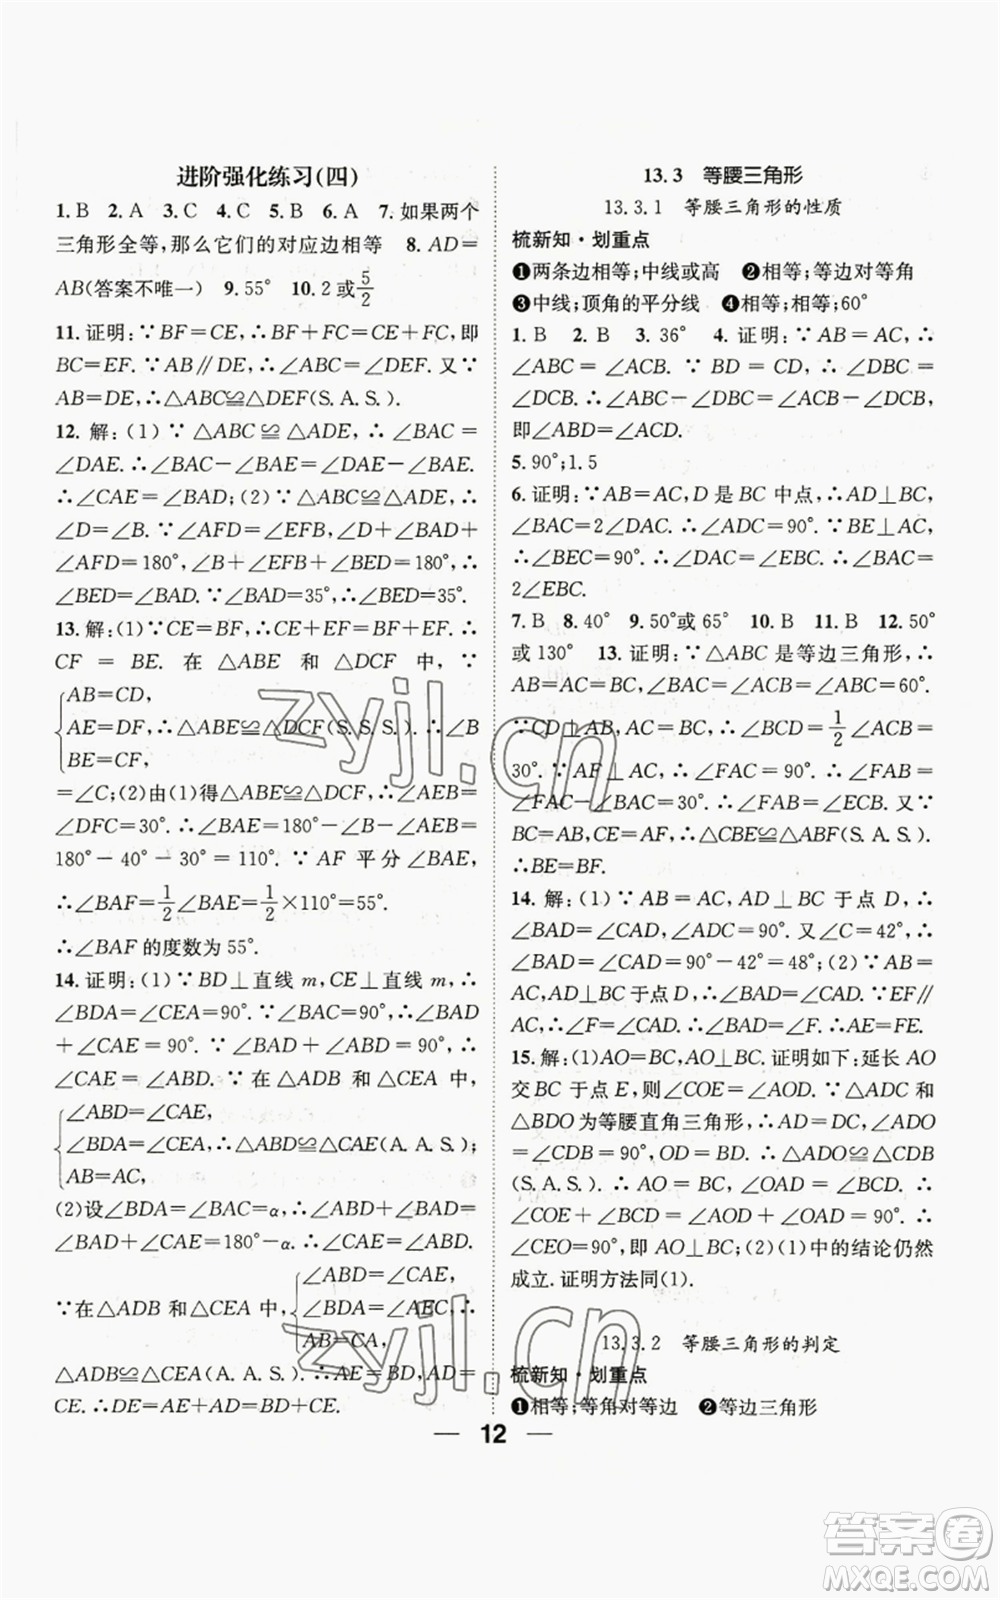 进阶强化练习(四)
1. B 2. A 3. C 4. C 5. B 6. A 7. 如果两个
三角形全等,那么它们的对应边相等 8. AD=
AB(答案不唯一) 9. 55° 10. 2 或5/2
11. 证明:∵BF=CE,∴BF+FC=CE+FC,即
BC=EF. ∵AB∥DE,∴∠ABC=∠DEF. 又∵
AB=DE,∴△ABC≌△DEF(S. A. S.).
12. 解:(1)∵△ABC≌△ADE,∴∠BAC=
∠DAE. ∴∠BAC-∠BAE=∠DAE-∠BAE.
∴∠CAE=∠BAD;(2)∵△ABC≌△ADE,∴
∠D=∠B. ∵∠AFD=∠EFB,∠D+∠BAD+
∠AFD=180°,∠B+∠EFB+∠BED=180°,∴
∠BED=∠BAD. ∵∠BAD=35°,∴∠BED=35°.
13. 解:(1)∵CE=BF,∴CE+EF=BF+EF. ∴
CF=BE. 在△ABE 和△DCF 中,∵
AB=CD,
AE=DF,∴△ABE≌△DCF(S. S. S.). ∴∠B
BE=CF,
=∠C;(2)由(1)得△ABE≌△DCF,∴∠AEB=
∠DFC=30°. ∴∠BAE=180°-∠B-∠AEB=
180°-40°-30°=110°. ∵AF 平分∠BAE,
∴∠BAF=1/2∠BAE=1/2×110°=55°.
∴∠BAF 的度数为 55°.
14. 证明:(1)∵BD⊥直线 m,CE⊥直线 m,∴
∠BDA=∠CEA=90°. ∵∠BAC=90°,∴∠BAD
+∠CAE=90°. ∵∠BAD+∠ABD=90°,∴
∠CAE=∠ABD. ∵在△ADB 和△CEA 中,
∠ABD=∠CAE,
∠BDA=∠CEA,∴△ABD≌△CAE(A. A. S.);
AB=AC,
(2)设∠BDA=∠BAC=α,∴∠ABD+∠BAD=
∠BAD+∠CAE=180°-α. ∴∠CAE=∠ABD.
∠ABD=∠CAE,
∵在△ADB 和△CEA 中,∠BDA=∠AEC,∴
AB=CA,
△ADB≌△CEA(A. A. S.). ∴AE=BD,AD=
CE. ∴DE=AE+AD=BD+CE.
13. 3 等腰三角形
13. 3. 1 等腰三角形的性质
梳新知·划重点
❶两条边相等;中线或高 ❷相等;等边对等角
❸中线;顶角的平分线 ❹相等;相等;60°
1. B 2. B 3. 36° 4. 证明:∵AB=AC,∴
∠ABC=∠ACB. ∵BD=CD,∴∠DBC=
∠DCB. ∴∠ABC-∠DBC=∠ACB-∠DCB,
即∠ABD=∠ACD.
5. 90°;1. 5
6. 证明:∵AB=AC,D 是 BC 中点,∴AD⊥BC,
∠BAC=2∠DAC. ∴∠ADC=90°. ∵BE⊥AC,
∴∠BEC=90°. ∴∠DAC=∠EBC. ∴∠BAC=
2∠EBC.
7. B 8. 40° 9. 50°或 65° 10. B 11. B 12. 50°
或 130° 13. 证明:∵△ABC 是等边三角形,∴
AB=AC=BC,∠BAC=∠ACB=∠ABC=60°.
∵CD⊥AB,AC=BC,∴∠BCD=1/2∠ACB=
30°. ∵AF⊥AC,∴∠FAC=90°. ∴∠FAB=
∠FAC-∠BAC=30°. ∴∠FAB=∠ECB. 又∵
BC=AB,CE=AF,∴△CBE≌△ABF(S. A. S.).
∴BE=BF.
14. 解:(1)∵AB=AC,AD⊥BC 于点 D,∴
∠BAD=∠CAD,∠ADC=90°. 又∠C=42°,∴
∠BAD=∠CAD=90°-42°=48°;(2)∵AB=
AC,AD⊥BC 于点 D,∴∠BAD=∠CAD. ∵EF∥
AC,∴∠F=∠CAD. ∴∠BAD=∠F. ∴AE=FE.
15. 解:(1)AO=BC,AO⊥BC. 证明如下:延长 AO
交 BC 于点 E,则∠COE=∠AOD. ∵△ADC 和
△BDO 为等腰直角三角形,∴AD=DC,∠ADO
=∠CDB=90°,OD=BD. ∴△ADO≌△CDB
(S. A. S.). ∴AO=BC,∠OAD=∠BCD. ∴
∠COE+∠BCD=∠AOD+∠OAD=90°. ∴
∠CEO=90°,即 AO⊥BC;(2)(1)中的结论仍然
成立. 证明方法同(1).
13. 3. 2 等腰三角形的判定
梳新知·划重点
❶相等;等角对等边 ❷等边三角形
— 12 —
zyjl.cn
zyjl.cn
答案圈
MXQE.COM